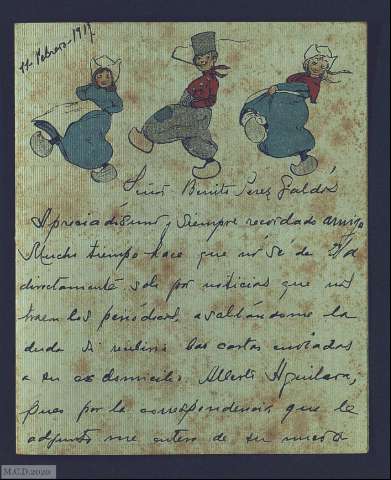 11-Febrero-1917.
Señor Benito Perez Galdós
Apreciadísimo y siempre recordado amigo
Mucho tiempo hace que no se de Vd
directamente solo por noticias que nos
traen los periódicos, asaltándome la
duda si recibiria las cartas enviadas
a su ex domicilio. Alberto Aguilera,
pues por la correspondencia que le
adjunto me entero de su nueva
M.C.D. 2020